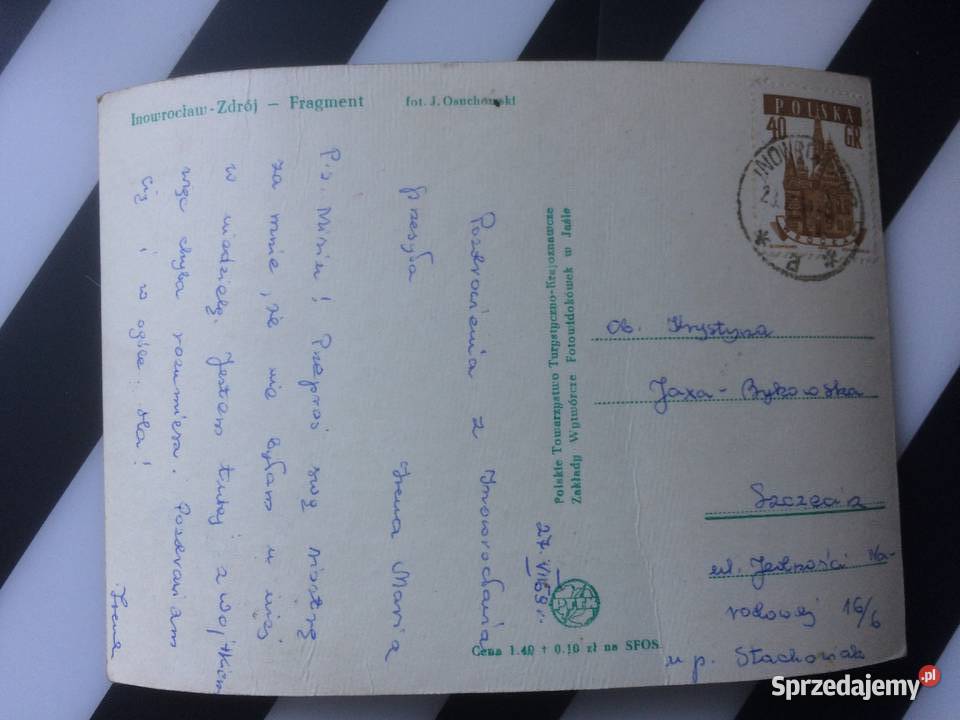 Inowrocław-Zdrój — Fragment
fot. J. Osuchowski
Pozdrowienia z Inowrocławia
przesyła
Irena Maria
P.s. Misiu! Przeproś swą siostrę
za mnie, że nie byłam u niej
w niedzielę. Jestem tutaj z wojtkiem
więc chyba rozumiesz. Pozdrawiam
cię i w ogóle. Ha!
Irena
27.VII 59 r.
Polskie Towarzystwo Turystyczno-Krajoznawcze
Zakłady Wytwórcze Fotowidokówek w Jaśle
PTTK
Cena 1.40 + 0.10 zł na SFOS
POLSKA
40 GR
Ob. Krystyna
Jaxa-Bykowska
Szczecin
ul. Jedności Na-
rodowej 16/6
u p. Stachowiak
Sprzedajemy.pl